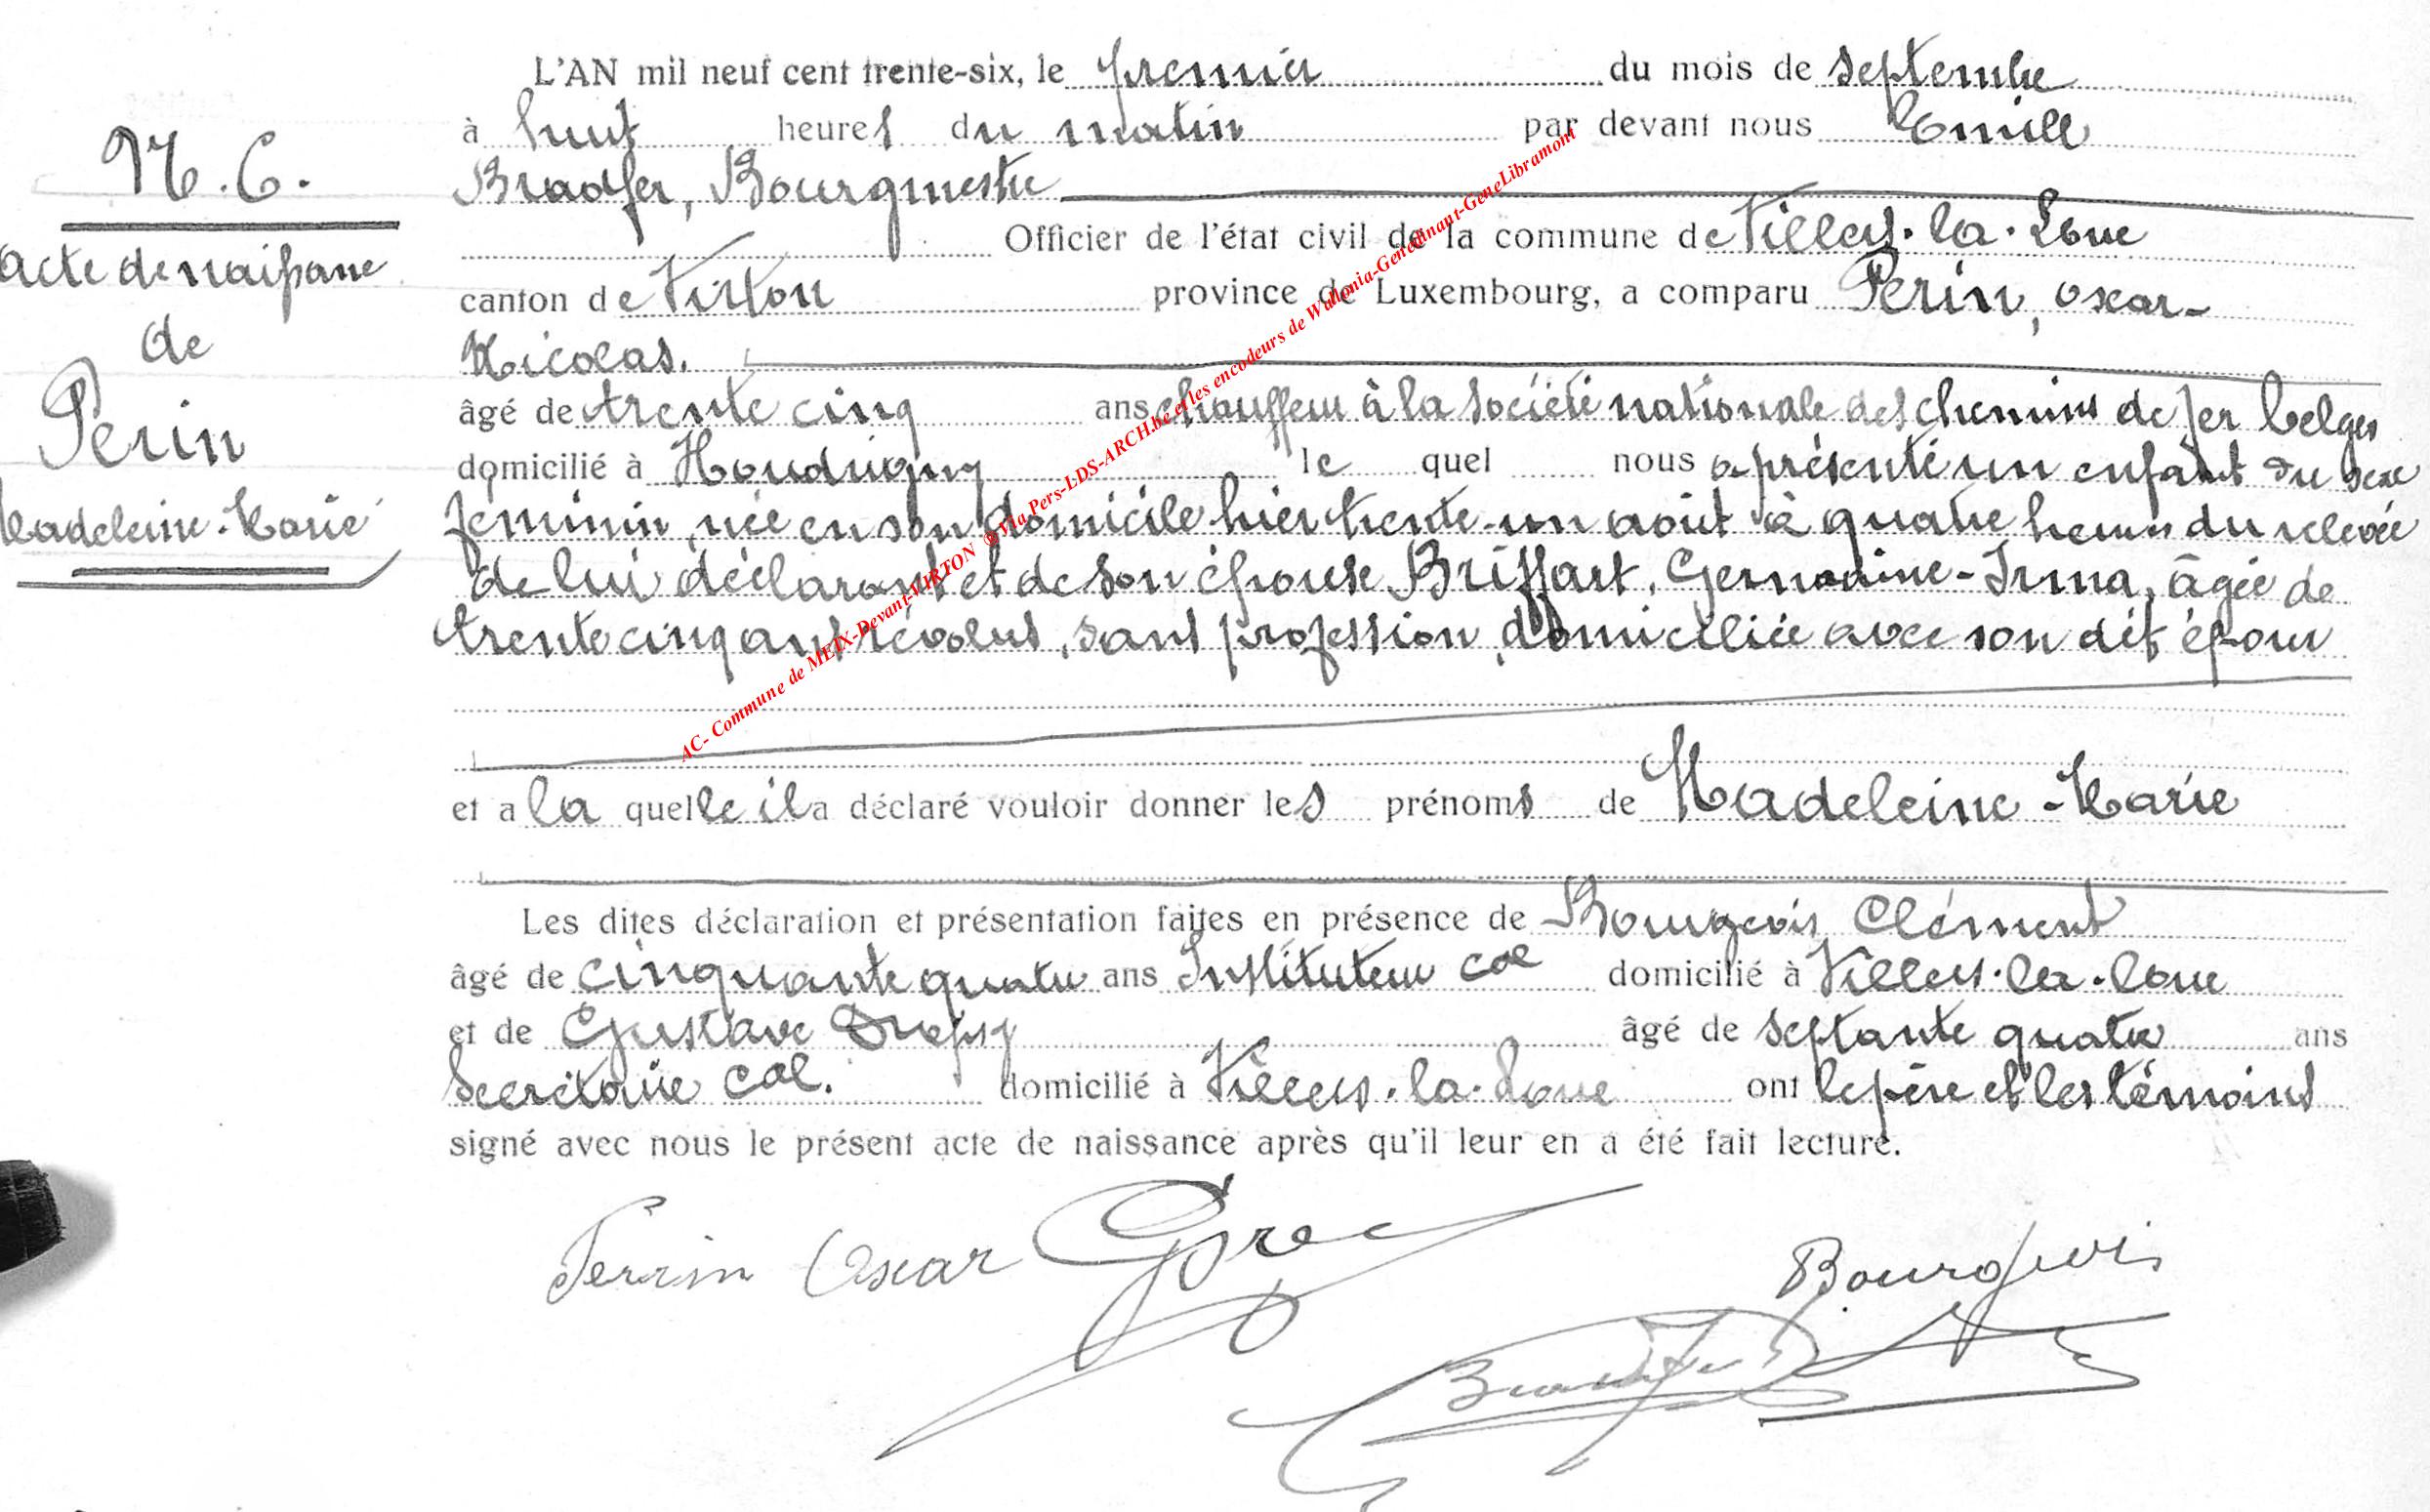 N. 6.
acte de naissance
de
Perin
Madeleine-Marie
L'AN mil neuf cent trente-six, le premier du mois de septembre
à huit heures du matin par devant nous Emile
Bradfer, Bourgmestre
Officier de l'état civil de la commune de Villers-la-Loue
canton de Virton province de Luxembourg, a comparu Perin, oscar-
Nicolas.
âgé de trente cinq ans chauffeur à la société nationale des chemins de fer belges
domicilié à Houdrigny le quel nous a présenté un enfant du sexe
féminin, née en son domicile hier trente-un août à quatre heures du relevée
de lui déclarant et de son épouse Briffart, Germaine-Irma, âgée de
trente cinq ans révolus, sans profession, domiciliée avec son dit époux
et a la quelle il a déclaré vouloir donner les prénoms de Madeleine-Marie
Les dites déclaration et présentation faites en présence de Bourgeois Clément
âgé de cinquante quatre ans Instituteur cal domicilié à Villers-la-loue
et de Gustave âgé de septante quatre ans
Secrétaire cal. domicilié à Villers-la-Loue ont le père et les témoins
signé avec nous le présent acte de naissance après qu'il leur en a été fait lecture.
Perrin Oscar
Bourgeois
Bradfer
AC- Commune de MEIX-Devant-VIRTON © Via Pers-LDS-ARCH.be et les encodeurs de Wallonia-Genedinant-GeneLibramont